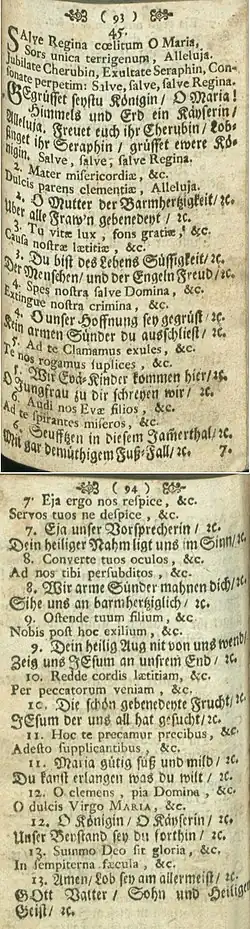 ( 93 )
45.
SAlve Regina cœlitum O Maria,
Sors unica terrigenum, Alleluja.
Jubilate Cherubin, Exultate Seraphin, Con-
sonate perpetim: Salve, salve, salve Regina.
GEgrüsset seystu Königin/ O Maria!
Himmels und Erd ein Käyserin/
Alleluja. Freuet euch ihr Cherubin/ lob-
singet ihr Seraphin/ grüsset ewere Kö-
nigin, Salve, salve, salve Regina.
2. Mater misericordiæ, &c.
Dulcis parens clementiæ, Alleluja.
2. O Mutter der Barmhertzigkeit/ ꝛc.
Uber alle Fraw'n gebenedeyt/ ꝛc.
3. Tu vitæ lux, fons gratiæ, &c.
Causa nostræ lætitiæ, &c.
3. Du bist des Lebens Süssigkeit/ ꝛc.
Der Menschen/ und der Engeln Freud/ ꝛc.
4. Spes nostra salve Domina, &c.
Extingue nostra crimina, &c.
4. O unser Hoffnung sey gegrüst/ ꝛc.
Kein armen Sünder du ausschliest/ ꝛc.
5. Ad te Clamamus exules, &c.
Te nos rogamus suplices, &c.
5. Wir Evä-Kinder kommen hier/ ꝛc.
O Jungfrau zu dir schreyen wir/ ꝛc.
6. Audi nos Evæ filios, &c.
Ad te spirantes miseros, &c.
6. Seufftzen in diesem Jam̃erthal/ ꝛc.
Mit gar demüthigem Fuß-Fall/ ꝛc. 7.
( 94 )
7. Eja ergo nos respice, &c.
Servos tuos ne despice, &c.
7. Eja unser Vorsprecherin/ ꝛc.
Dein heiliger Nahm ligt uns im Sinn/ ꝛc.
8. Converte tuos oculos, &c.
Ad nos tibi persubditos, &c.
8. Wir arme Sünder mahnen dich/ ꝛc.
Sihe uns an barmhertziglich/ ꝛc.
9. Ostende tuum filium, &c.
Nobis post hoc exilium, &c.
9. Dein heilig Aug nit von uns wend/
Zeig uns JEsum an unsrem End/ ꝛc.
10. Redde cordis lætitiam, &c.
Per peccatorum veniam, &c.
10. Die schön gebenedeyte Frucht/ ꝛc.
JEsum der uns all hat gesucht/ ꝛc.
11. Hoc te precamur precibus, &c.
Adesto supplicantibus, &c.
11. Maria gütig süß und mild/ ꝛc.
Du kanst erlangen was du wilt/ ꝛc.
12. O clemens, pia Domina, &c.
O dulcis Virgo MARIA, &c.
12. O Königin/ O Käyserin/ ꝛc.
Unser Verstand sey du forthin/ ꝛc.
13. Summo Deo sit gloria, &c.
In sempiterna sæcula, &c.
13. Amen/ Lob sey am allermeist/ ꝛc.
GOtt Vatter/ Sohn und Heiligen
Geist/ ꝛc.